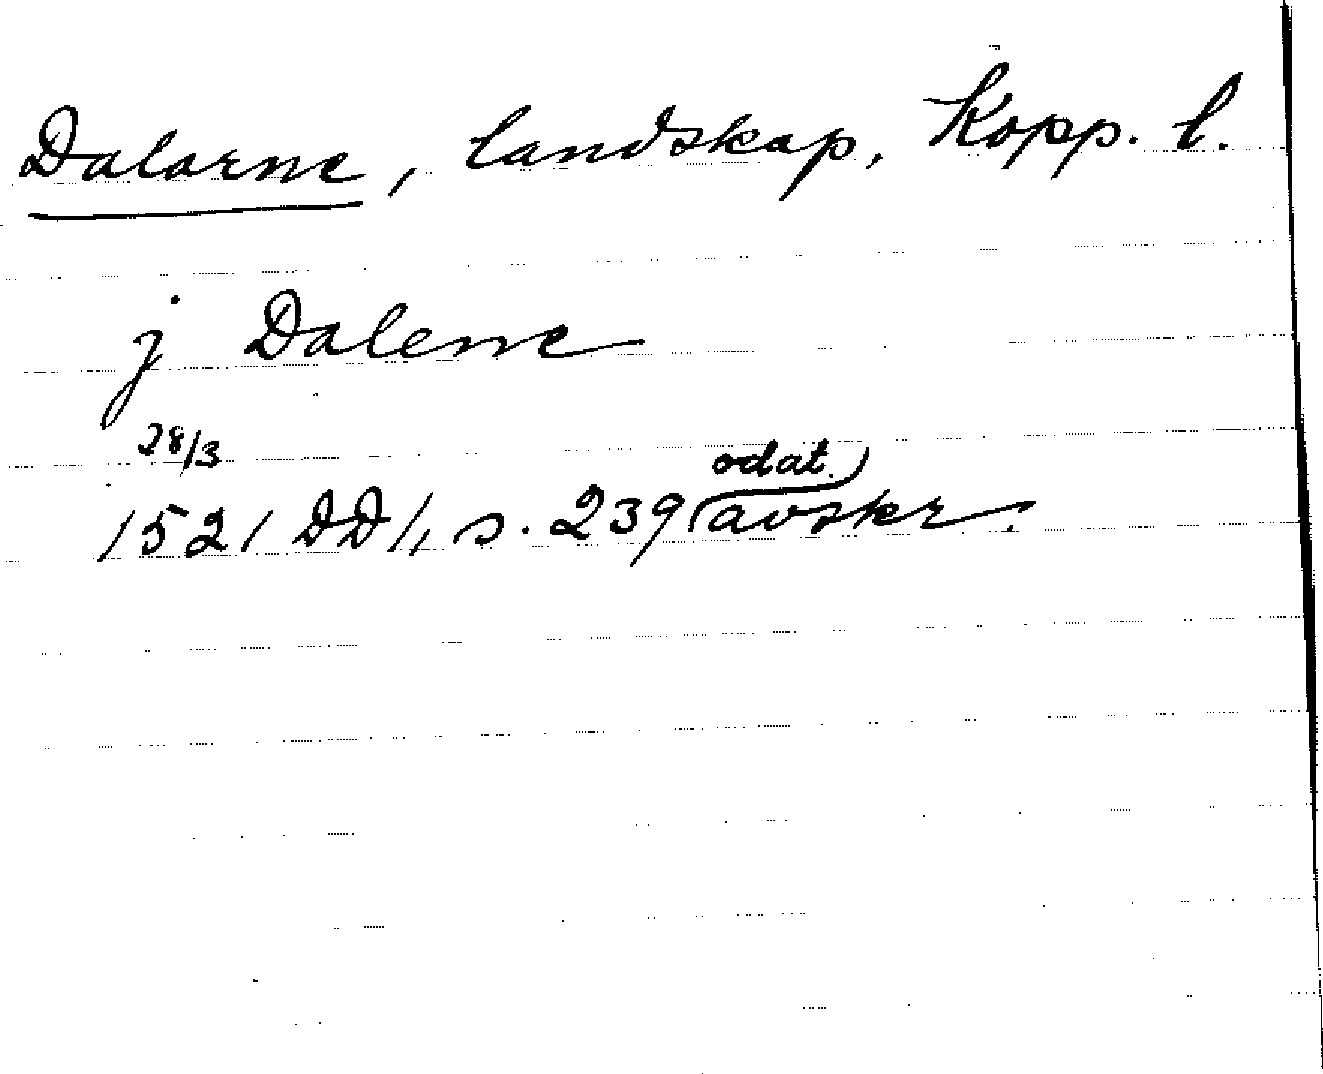 Dalarne, landskap, Kopp. l.
j Dalene
28/3
odat.)
1521 DD 1, s. 239 (avskr.